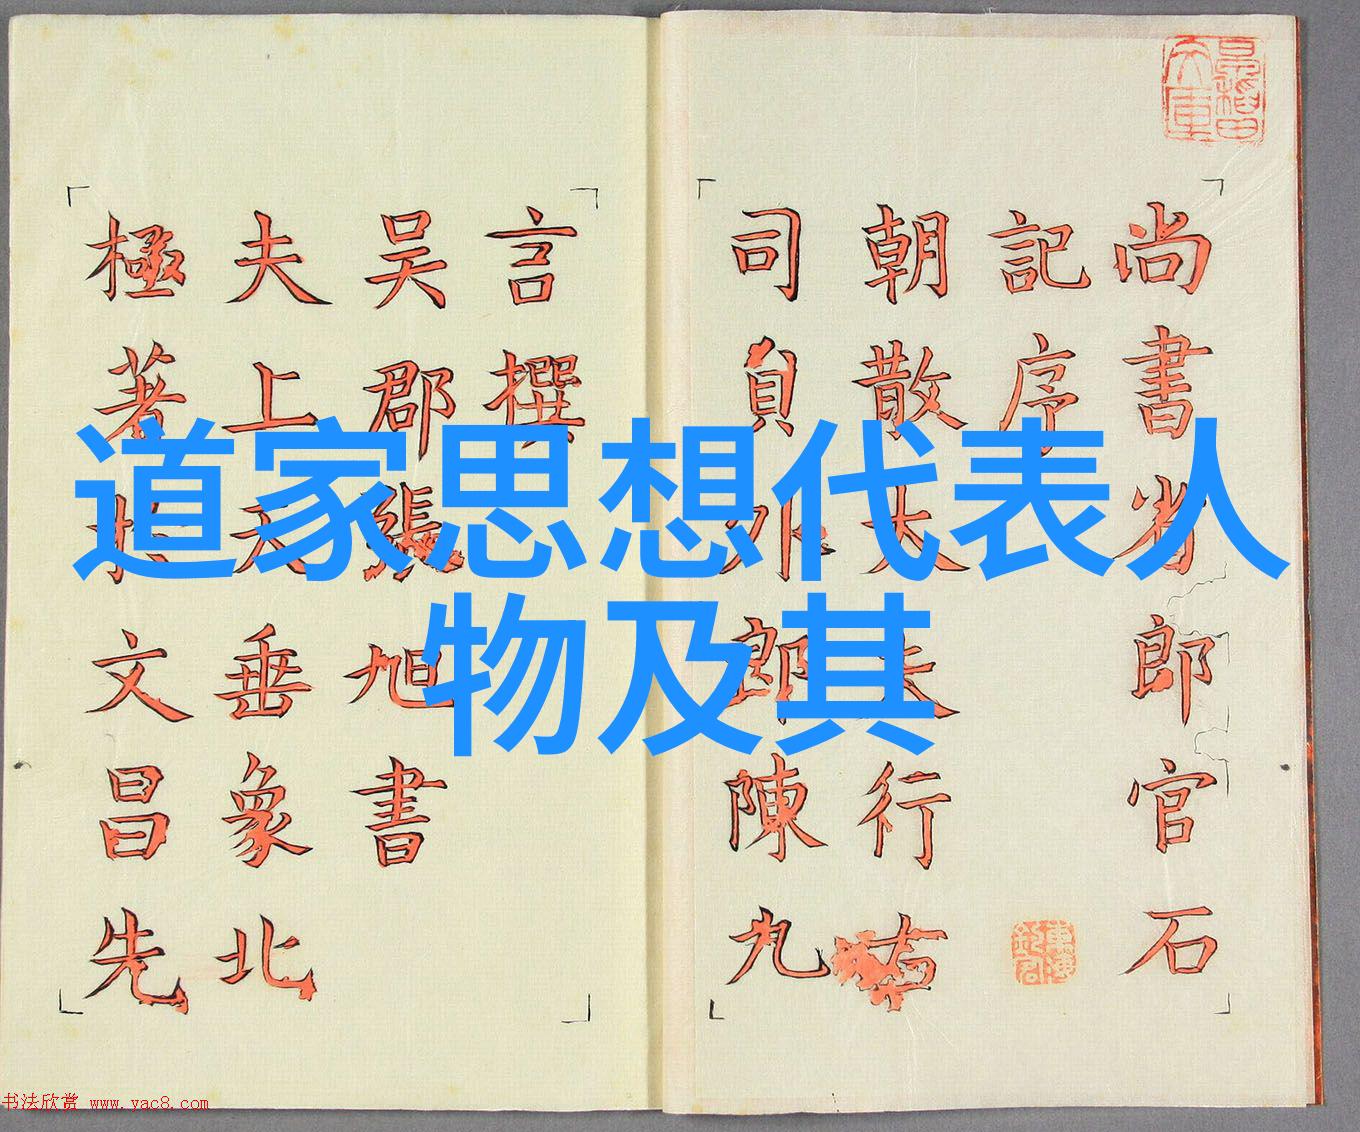 尚書省郎官石
記序
朝散大夫行右
司員外郎陳九
言撰
吴郡張旭書
夫上天垂象北
極著於文昌先
道家思想代表人
物及其
书法欣赏 www.yac8.com